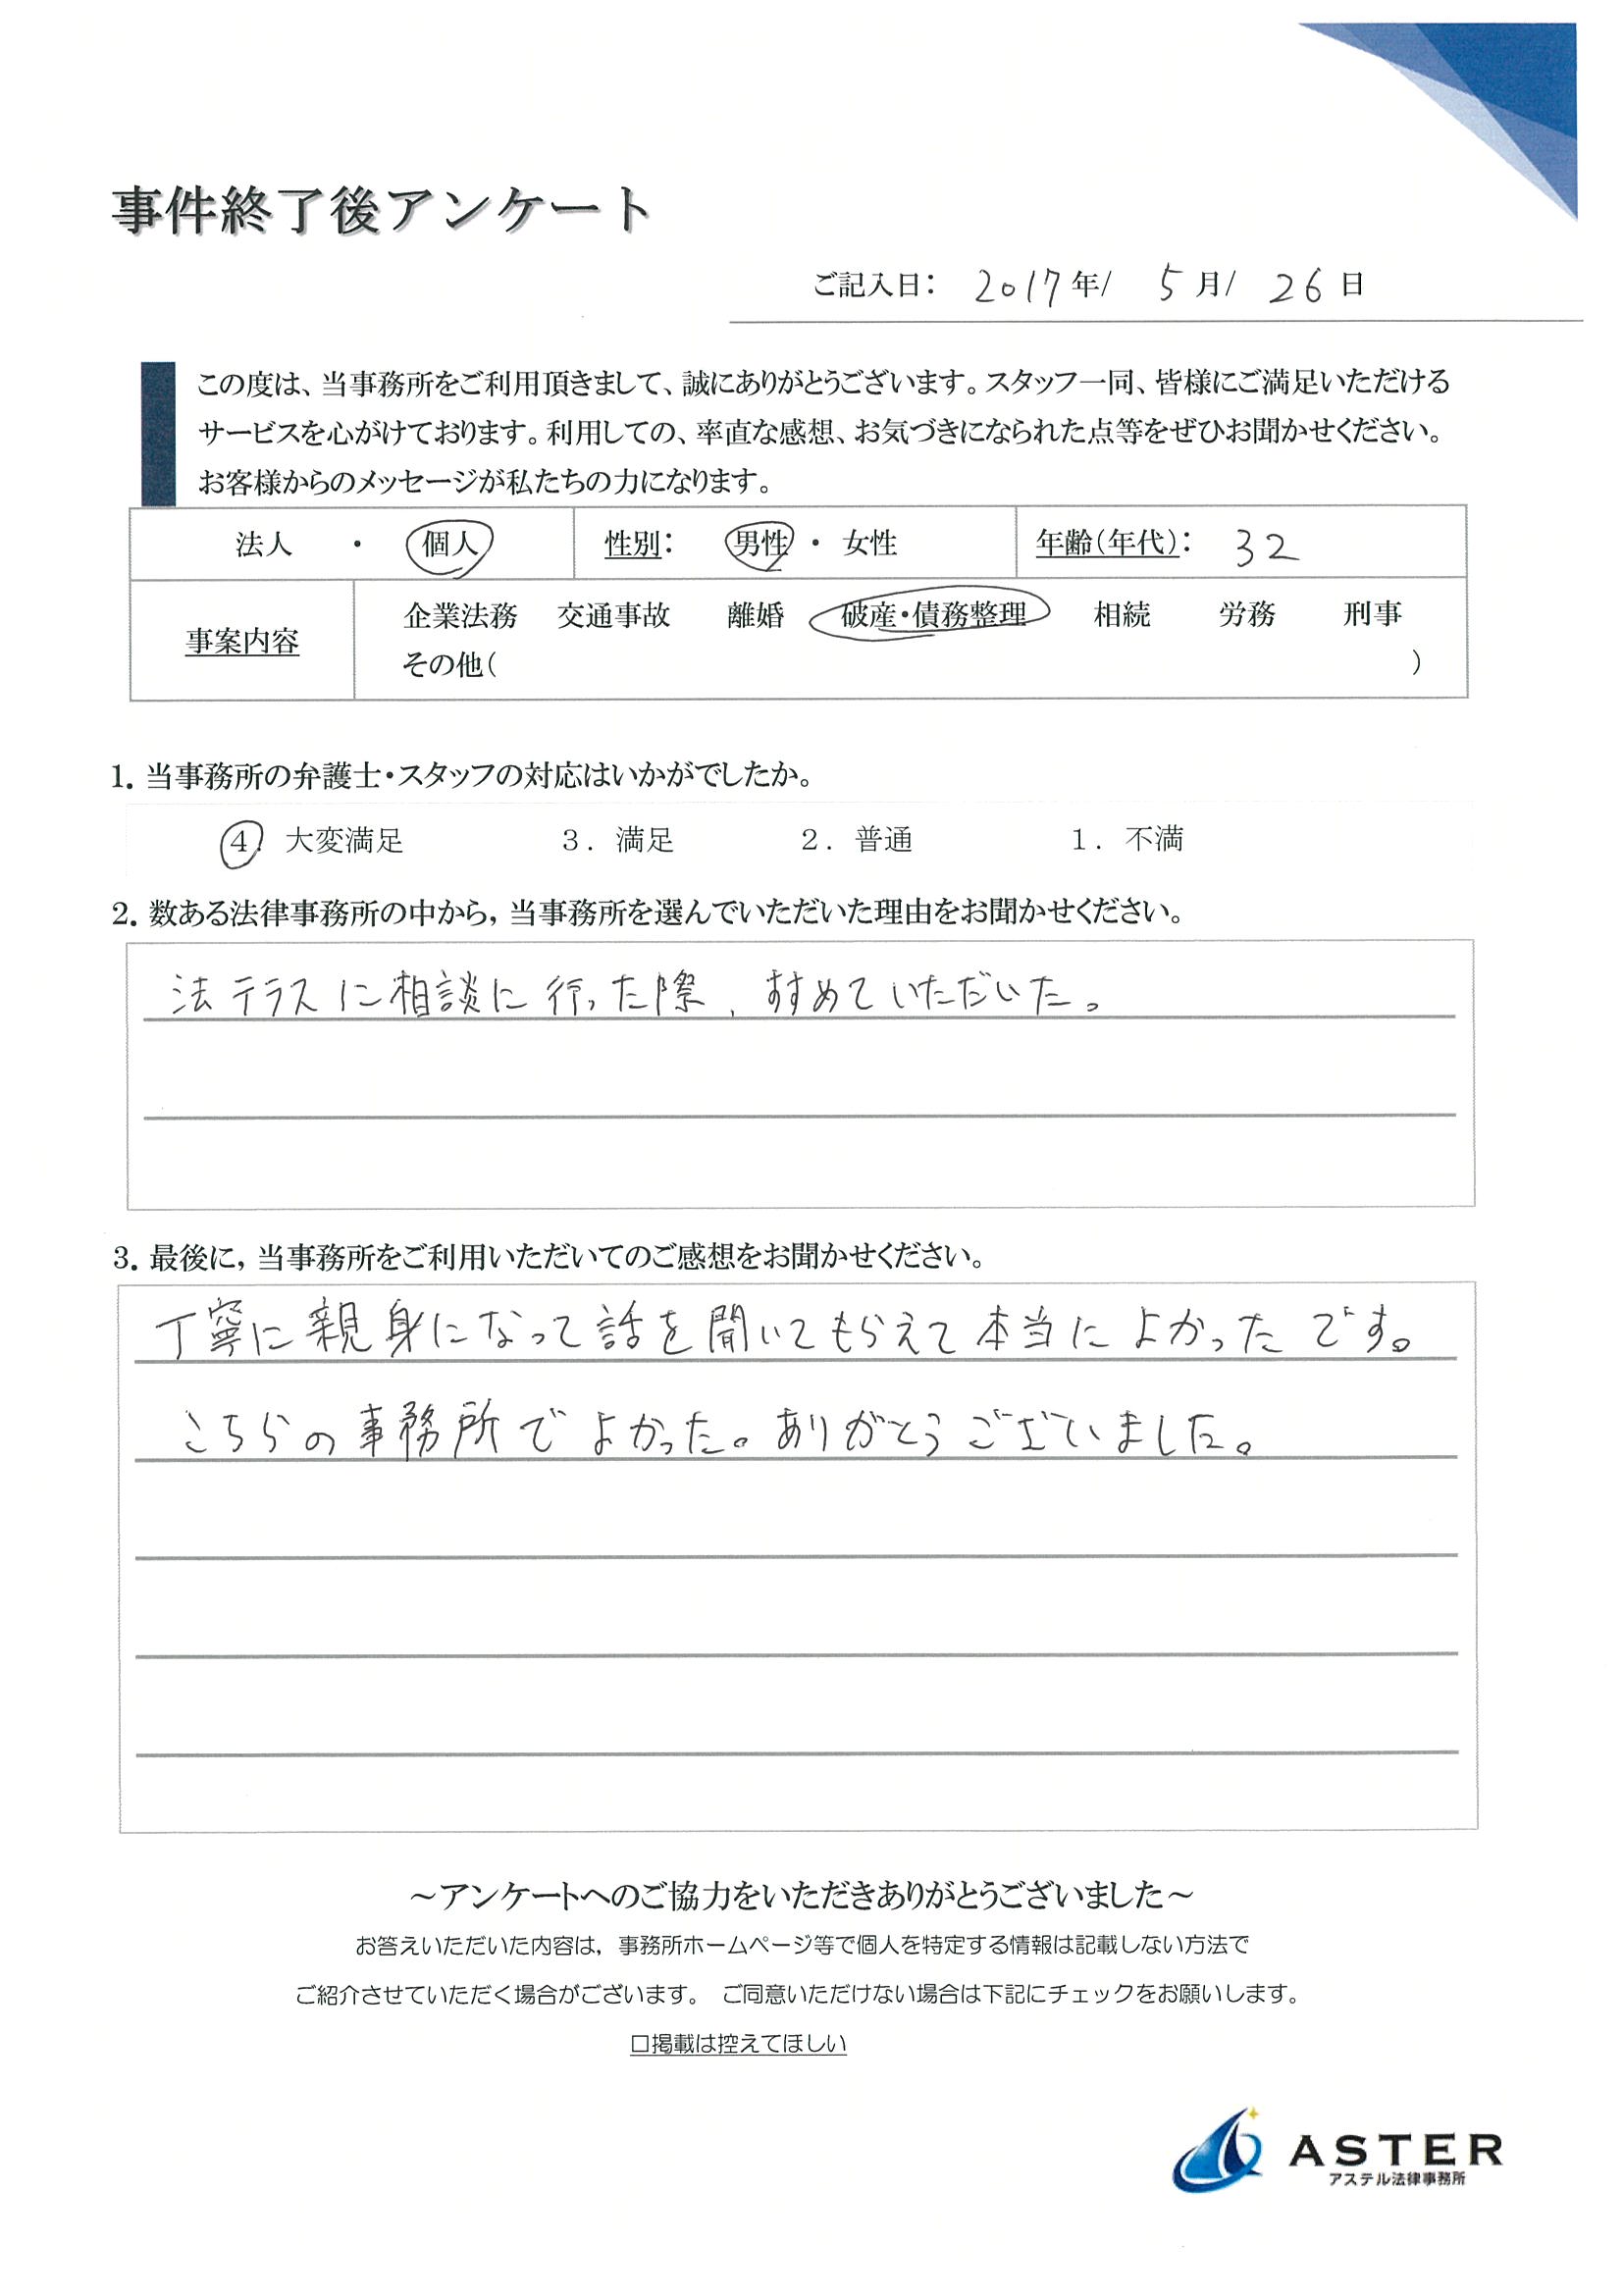 事件終了後アンケート
ご記入日： 2017年/ 5月/ 26日
この度は、当事務所をご利用頂きまして、誠にありがとうございます。スタッフ一同、皆様にご満足いただける
サービスを心がけております。利用しての、率直な感想、お気づきになられた点等をぜひお聞かせください。
お客様からのメッセージが私たちの力になります。
法人 ・ 個人 性別： 男性 ・ 女性 年齢（年代）： 32
企業法務 交通事故 離婚 破産・債務整理 相続 労務 刑事
事案内容
その他（ ）
1. 当事務所の弁護士・スタッフの対応はいかがでしたか。
4. 大変満足 3. 満足 2. 普通 1. 不満
2. 数ある法律事務所の中から，当事務所を選んでいただいた理由をお聞かせください。
法テラスに相談に行った際、すすめていただいた。
3. 最後に，当事務所をご利用いただいてのご感想をお聞かせください。
丁寧に親身になって話を聞いてもらえて本当によかったです。
こちらの事務所でよかった。ありがとうございました。
～アンケートへのご協力をいただきありがとうございました～
お答えいただいた内容は，事務所ホームページ等で個人を特定する情報は記載しない方法で
ご紹介させていただく場合がございます。 ご同意いただけない場合は下記にチェックをお願いします。
□掲載は控えてほしい
ASTER
アステル法律事務所